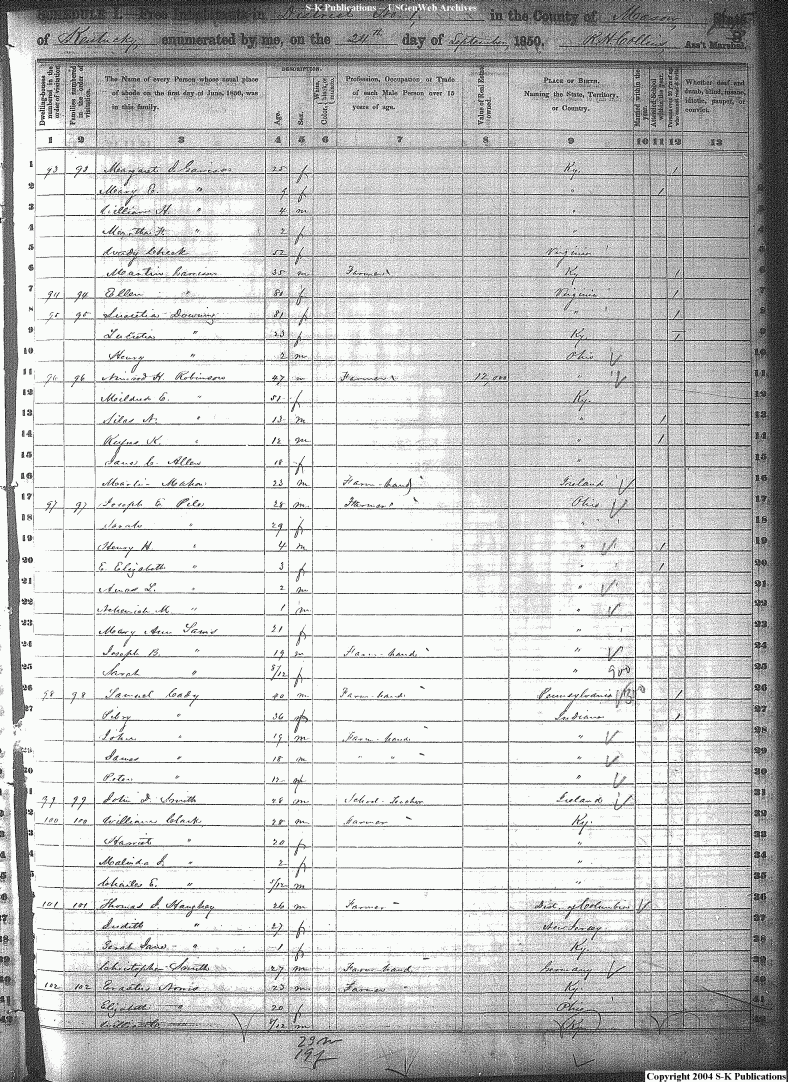 S-K Publications – USGenWeb Archives
SCHEDULE I. Free Inhabitants in District No. 1 in the County of Mason State
of Kentucky enumerated by me, on the 24th day of September 1850. R H Collins Ass't Marshal.
Dwelling-houses numbered in the order of visitation.
Families numbered in the order of visitation.
The Name of every Person whose usual place of abode on the first day of June, 1850, was in this family.
DESCRIPTION.
Age.
Sex.
Color, White, black, or mulatto.
Profession, Occupation, or Trade of each Male Person over 15 years of age.
Value of Real Estate owned.
PLACE OF BIRTH. Naming the State, Territory, or Country.
Married within the year.
Attended School within the year.
Whether deaf and dumb, blind, insane, idiotic, pauper, or convict.
1 2 3 4 5 6 7 8 9 10 11 12 13
1 93 93 Margaret J. Garrison 25 f Ky. 1 1
2 Mary E. " 9 f " 1 2
3 William H. " 4 m " 3
4 Martha F. " 2 f " 4
5 Cheek 52 f Virginia 5
6 Martin Garrison 35 m Farmer Ky 1 6
7 94 94 Ellen " 80 f Virginia 1 7
8 95 95 Lucretia Downing 81 f " 1 8
9 Lucretia " 23 f Ky. 1 9
10 Henry " 2 m Ohio 10
11 96 96 Nimrod H. Robinson 47 m Farmer 12,000 " 11
12 Mildred E. " 51 f Ky. 12
13 Silas N. " 13 m " 1 13
14 Rufus K. " 12 m " 1 14
15 Jane C. Allen 18 f " 15
16 Martin Mahon 23 m Farm-hand Ireland 16
17 97 97 Joseph E. Piles 28 m Farmer Ohio 17
18 Sarah " 29 f " 18
19 Henry H. " 4 m " 1 19
20 E. Elizabeth " 3 f " 1 20
21 Amos L. " 2 m " 21
22 Nehemiah M. " 1 m " 22
23 Mary Ann Sams 21 f " 23
24 Joseph B. " 19 m Farm-hand " 24
25 Sarah " 8/12 f " 900 25
26 98 98 Samuel Cady 40 m Farm-hand Pennsylvania 1 26
27 " 36 f Indiana 1 27
28 John " 19 m Farm-hand " 28
29 James " 18 m " " " 29
30 Peter " 12 m " 30
31 99 99 John F. Smith 28 m School-Teacher Ireland 31
32 100 100 William Clark 28 m Farmer Ky. 32
33 Harriet " 20 f " 33
34 Malinda J. " 2 f " 34
35 Charles E. " /12 m " 35
36 101 101 Thomas J. Haughey 26 m Farmer Dist. of Columbia 36
37 Judith " 27 f New Jersey 37
38 Sarah Jane " 1 f Ky. 38
39 Christopher Smith 27 m Farm-hand Germany 39
40 102 102 Erastus Norris 23 m Farmer Ky. 40
41 Elizabeth " 20 f Ohio 41
42 /12 m Ky 42
23 m
19 f
Copyright 2004 S-K Publications